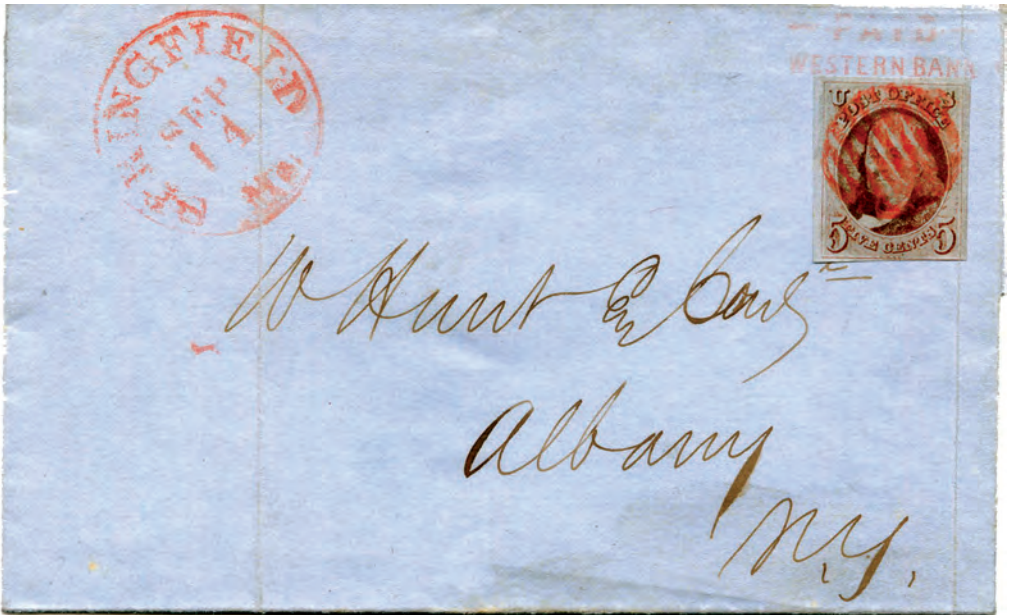 SPRINGFIELD
SEP
14
PAID
WESTERN BANK
U S
POST OFFICE
5 FIVE CENTS 5
W Hunt & Co
Albany
N.Y.